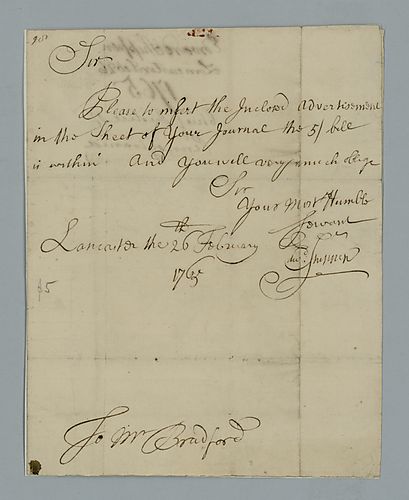 Sir
Please to insert the Inclosed Advertisement
in the Sheet of Your Journal the 5/ bill
is within And you will very much oblige
Sir
Your Most Humble
Servant
Edwd Shippen
Lancaster the 26th February
1765
To Mr Bradford